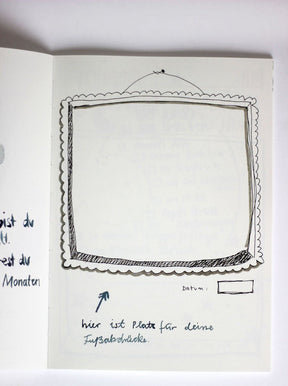 bist du
st du
Monaten
Datum:
hier ist Platz für deine
Fußabdrücke.